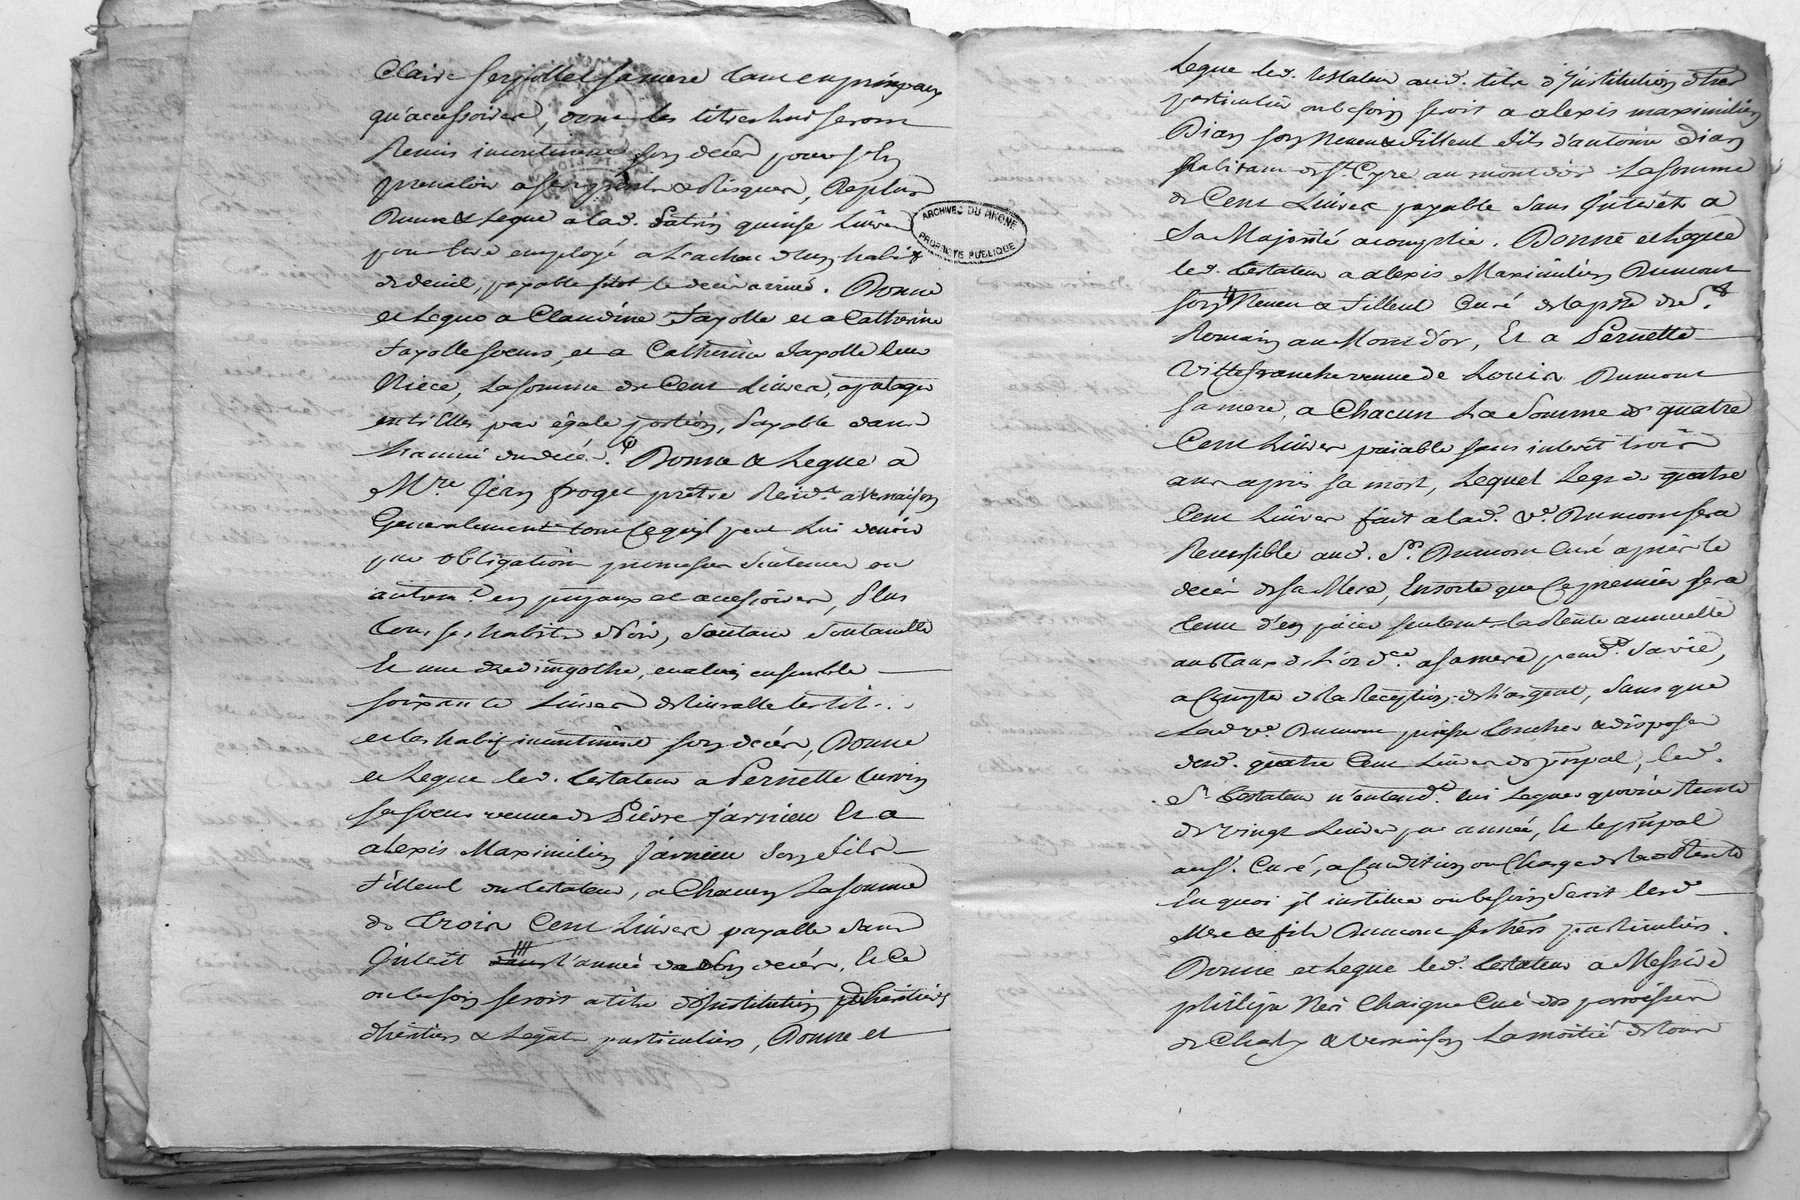 Claire sa mere tant en prinpaux
qu'accessoires, dont les titres lui seront
Remis incontinent son decès pour s'en
prevaloir a ses & Risques, Deplus
Donne & Legue a lad. Patrin quinse Livres
pour être employé a L'achat d'un habit
de deuil, payable sitot le decès arrivé. Donne
et Legue a Claudine Fayolle et a Catherine
Fayolle soeurs, et a Catherine Fayolle leur
Niece, La somme de Cent Livres, a partager
entr'Elles par égale portion, Payable dans
L'année du decés. Donne & Legue a
Mre. Jean froget prêtre Resid.t a Vernaison
Generalement tout Ce qu'il peut Lui devoir
par obligation promesses Sentence ou
autrem.t en prinpaux et accessoires, Plus
tous ses habits Noir, Soutane Soutanelle
Et une Redingothe, evalués ensemble
soixante Livres
et les habits incontinent son decès, Donne
et Legue led. testateur a Pernette
sa soeur veuve de Pierre Jarnieu Et a
alexis Maximilien Jarnieu Son fils
filleul du testateur, a Chacun La somme
de trois Cent Livres payable sans
Interêt l'année de son decés, Et Ce
ou besoin seroit a titre d'Institution
d'heritiers & Legats particuliers, Donne et
ARCHIVES DU RHONE
PROPRIETE PUBLIQUE
Legue led. testateur aud. titre d'Institution
particuliere ou besoin seroit a alexis maximilien
Dian son Neveu & filleul fils d'antoine Dian
habitant de St. Cyre au mont d'or La somme
de Cent Livres payable Sans Interêts a
Sa Majorité accomplie. Donne et Legue
led. testateur a alexis Maximilien Dumont
son Neveu & filleul Curé de la psse de St.
Romain au Mont d'or, Et a Pernette
Villefranche veuve de Louis Dumont
sa mere, a Chacun La Somme de quatre
Cent Livres païable sans interêt trois
ans après sa mort, Lequel Legs de quatre
Cent Livres fait a lad. ve. Dumont sera
Reversible aud. Sr. Dumont Curé après le
decès de sa Mere, Ensorte que Ce premier sera
tenu d'en païer seulemt. la Rente annuelle
au taux de L'ord.ce a sa mere pend.t Sa vie,
a Compter de la Reception de L'argent, Sans que
Lad. ve. Dumont puisse toucher & disposer
desd. quatre Cent Livres de prinpal, led.
Sr. testateur n'entend.t lui Leguer qu'une Rente
de vingt Livres par année, Et le prinpal
aud. Curé, a Condition ou Charge de lad. Rente
En quoi il institue ou besoin Seroit lesd.
Mere & fils Dumont ses hers. particuliers.
Donne et Legue led. testateur a Messire
philipe Neri Chaigne Curé des parroisses
de Charly & vernaison La moitié de tous